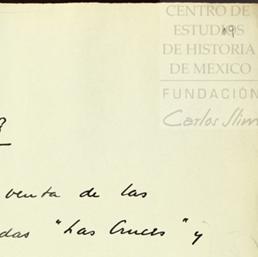 CENTRO DE
ESTUDIOS
DE HISTORIA
DE MEXICO
FUNDACIÓN
Carlos Slim
venta de las
das "Las Cruces" y